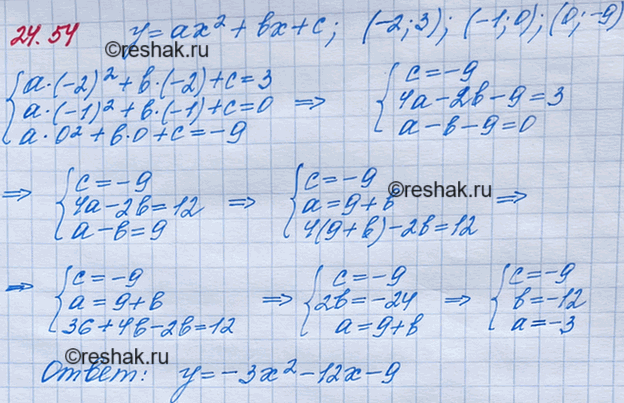 24.54 y=ax²+bx+c; (-2;3); (-1;0); (0;-9)
©reshak.ru
{a·(-2)²+b·(-2)+c=3
a·(-1)²+b·(-1)+c=0 ⇒
a·0²+b·0+c=-9
{c=-9
4a-2b-9=3
a-b-9=0
⇒ {c=-9
4a-2b=12
a-b=9
⇒ {c=-9
a=9+b
4(9+b)-2b=12 ⇒
©reshak.ru
⇒ {c=-9
a=9+b
36+4b-2b=12
⇒ {c=-9
2b=-24
a=9+b
⇒ {c=-9
b=-12
a=-3
©reshak.ru
Ответ: y=-3x²-12x-9